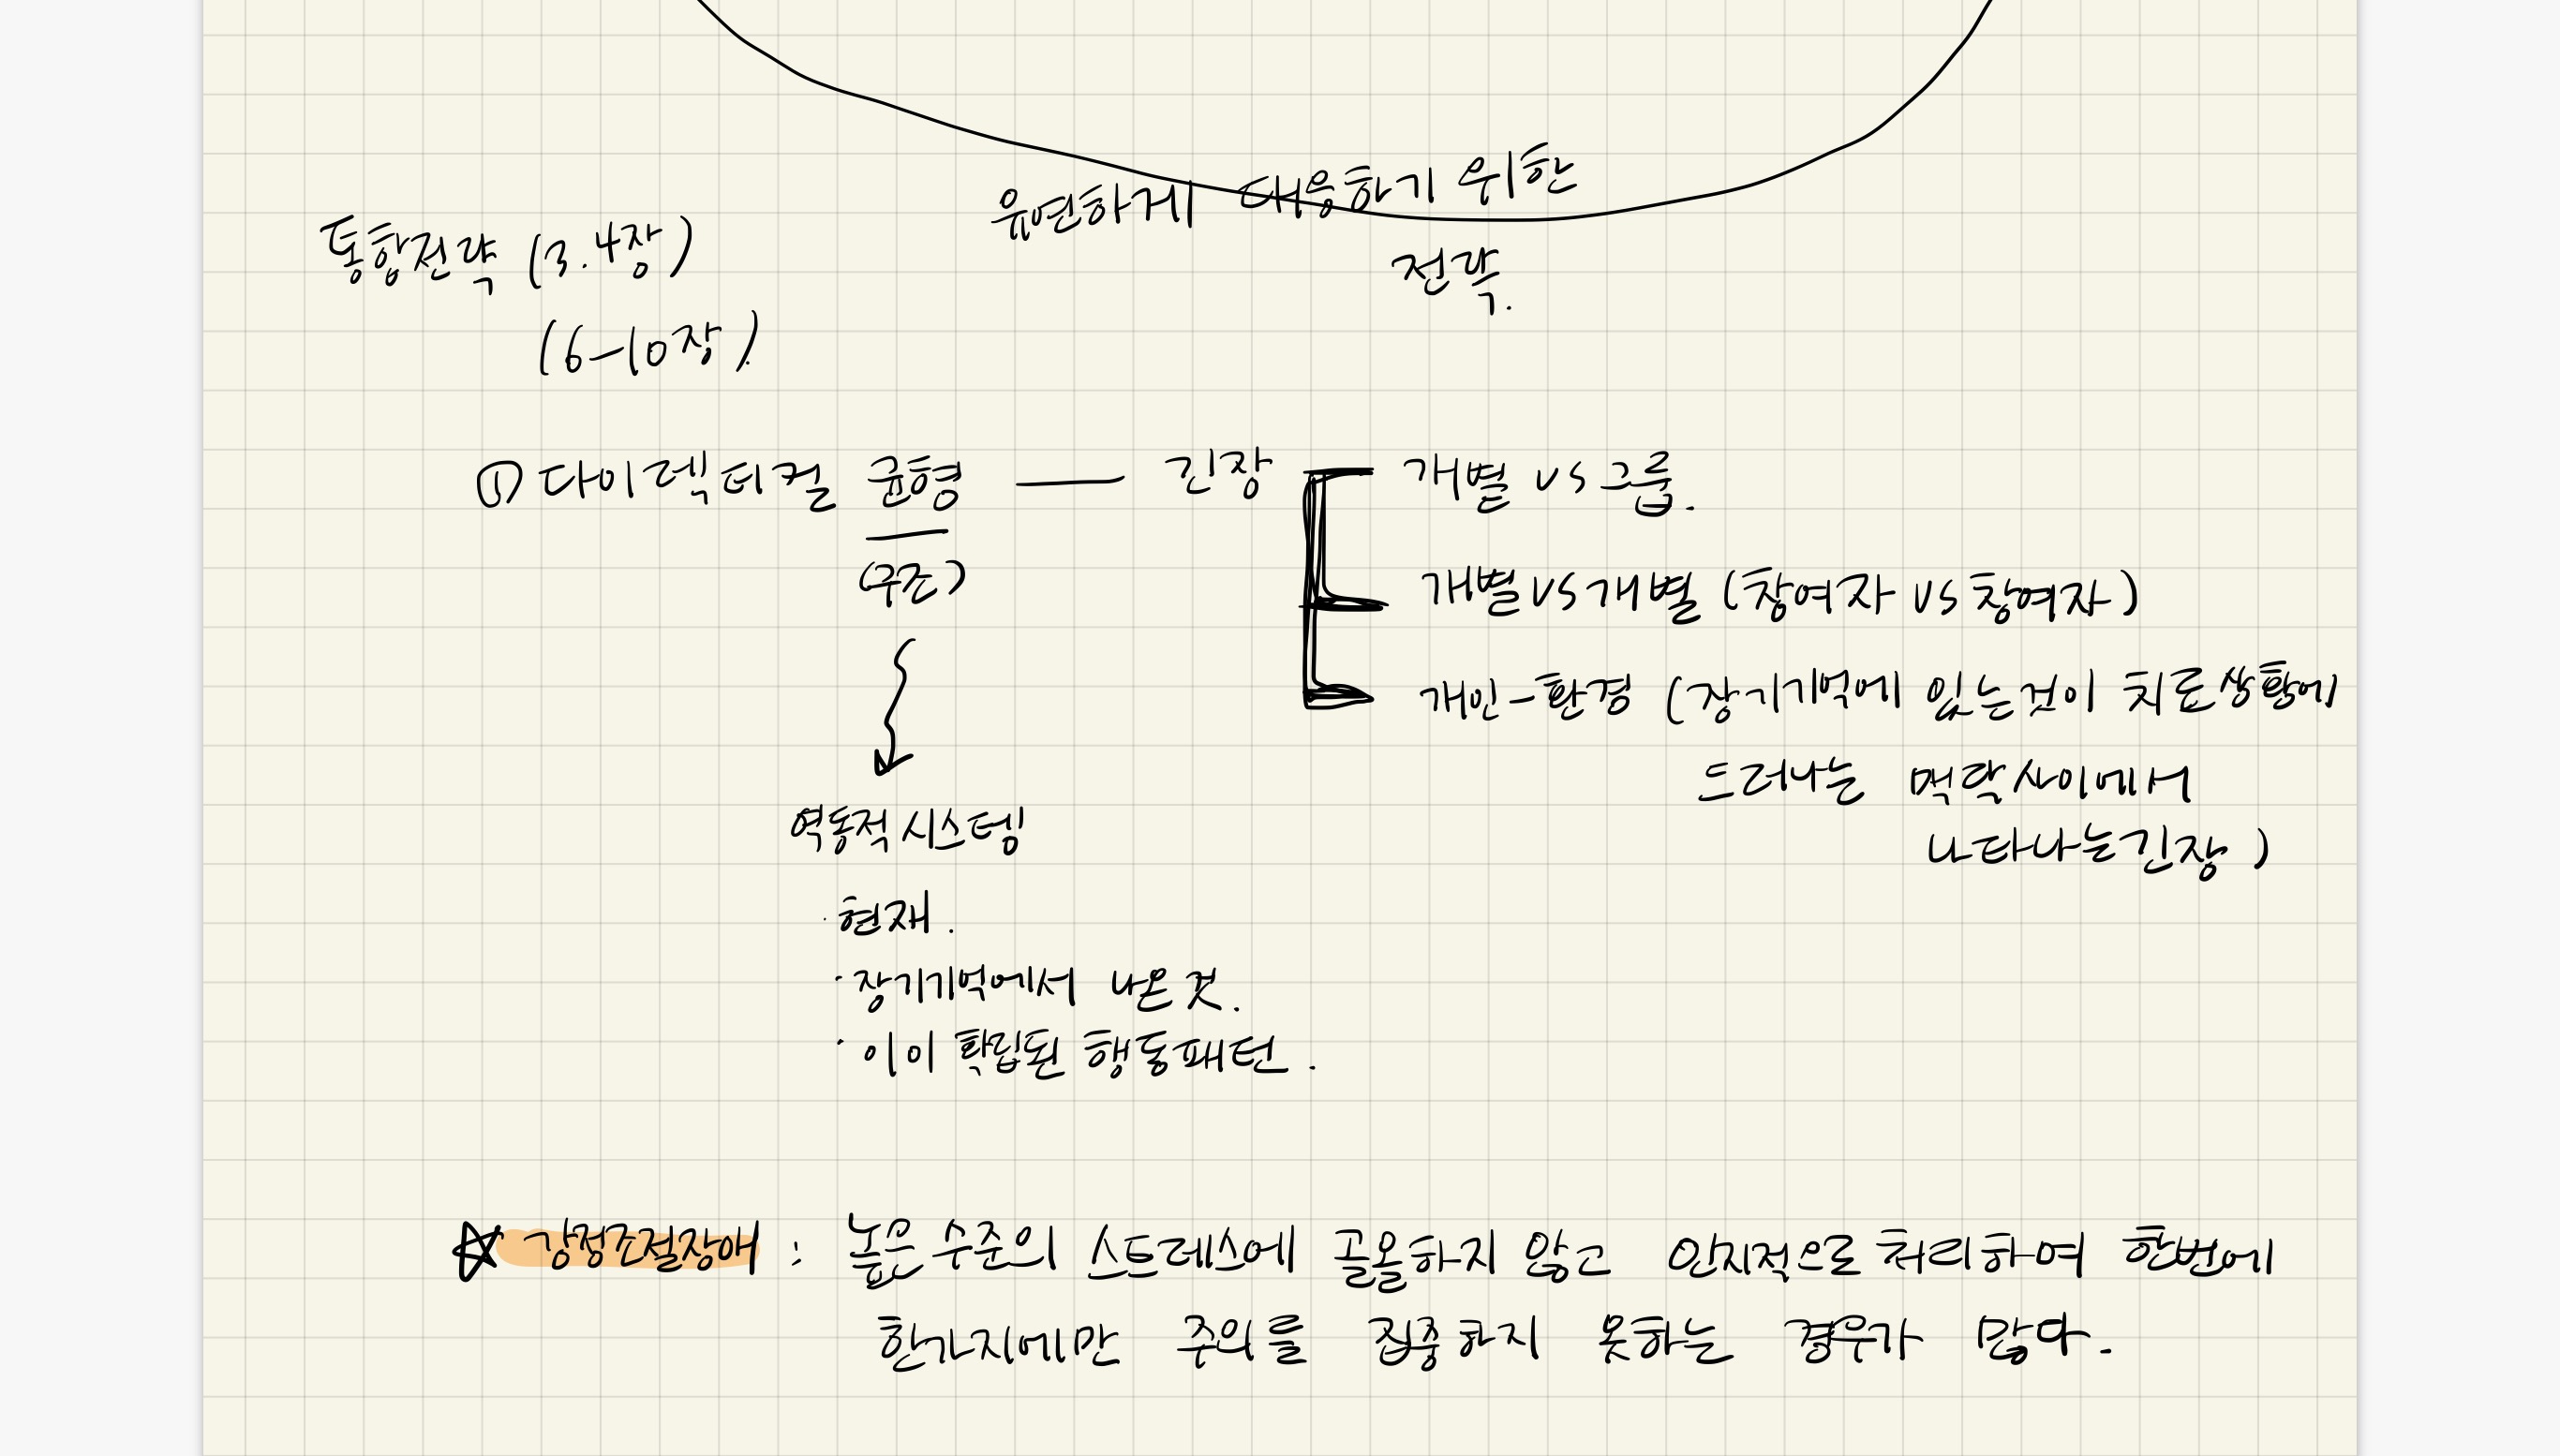 유연하게 대응하기 위한
전략.
통합전략 (3.4장)
(6-10장)
① 다이렉티컬 균형 — 긴장
(구조)
개별 vs 그룹.
개별 vs 개별 (참여자 vs 참여자)
개인-환경 (장기기억에 있는것이 치료상황에
드러나는 맥락사이에서
나타나는긴장)
역동적 시스템
·현재.
·장기기억에서 나온 것.
·이미 확립된 행동패턴.
☆ 감정조절장애 : 높은 수준의 스트레스에 골몰하지 않고 인지적으로 처리하여 한번에
한가지에만 주의를 집중하지 못하는 경우가 많다.